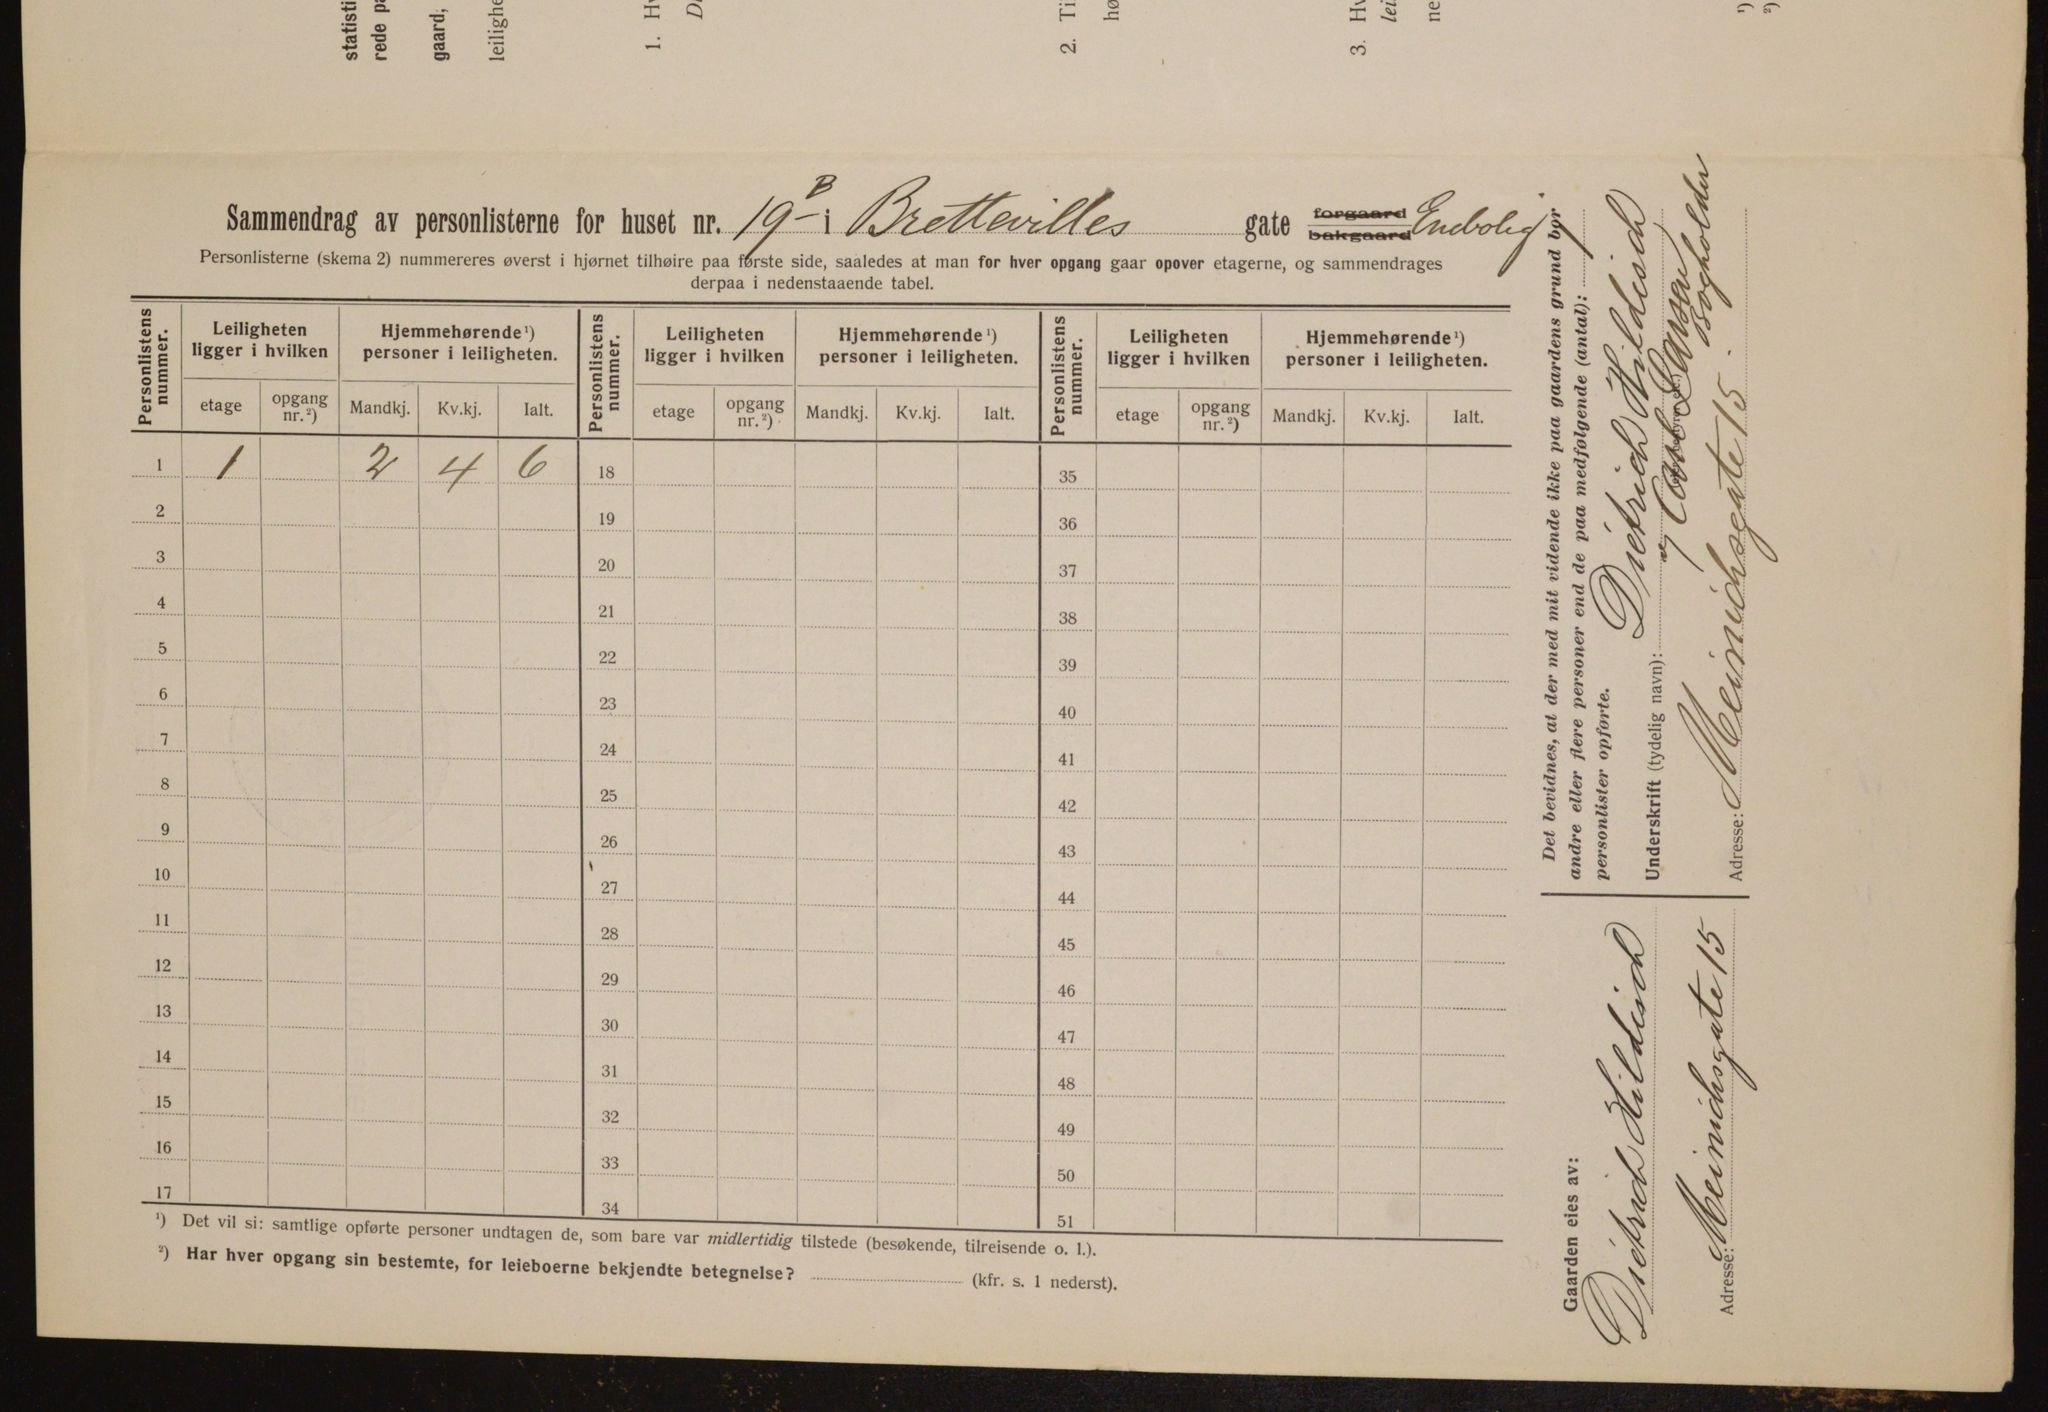 statisti
rede pa
gaard,
leilighe
1. Hv
D
2. Ti
hø
3. Hv
lei
ne
¹)
²)
Sammendrag av personlisterne for huset nr. 19 B i Brettevilles gate forgaard bakgaard Enebolig
Personlisterne (skema 2) nummereres øverst i hjørnet tilhøire paa første side, saaledes at man for hver opgang gaar opover etagerne, og sammendrages
derpaa i nedenstaaende tabel.
Personlistens nummer. Leiligheten ligger i hvilken Hjemmehørende¹) personer i leiligheten. Personlistens nummer. Leiligheten ligger i hvilken Hjemmehørende¹) personer i leiligheten. Personlistens nummer. Leiligheten ligger i hvilken Hjemmehørende¹) personer i leiligheten.
etage opgang nr.²) Mandkj. Kv.kj. Ialt. etage opgang nr.²) Mandkj. Kv.kj. Ialt. etage opgang nr.²) Mandkj. Kv.kj. Ialt.
1 1 2 4 6 18 35
2 19 36
3 20 37
4 21 38
5 22 39
6 23 40
7 24 41
8 25 42
9 26 43
10 27 44
11 28 45
12 29 46
13 30 47
14 31 48
15 32 49
16 33 50
17 34 51
¹) Det vil si: samtlige opførte personer undtagen de, som bare var midlertidig tilstede (besøkende, tilreisende o. l.).
²) Har hver opgang sin bestemte, for leieboerne bekjendte betegnelse? (kfr. s. 1 nederst).
Det bevidnes, at der med mit vidende ikke paa gaardens grund bor
andre eller flere personer end de paa medfølgende (antal): 1
personlister opførte.
Diétrich Hildisch
Underskrift (tydelig navn): Carl Larsen
Bogholder
Adresse: Meinichsgate 15.
Gaarden eies av:
Diétrich Hildisch
Adresse: Meinichsgate 15